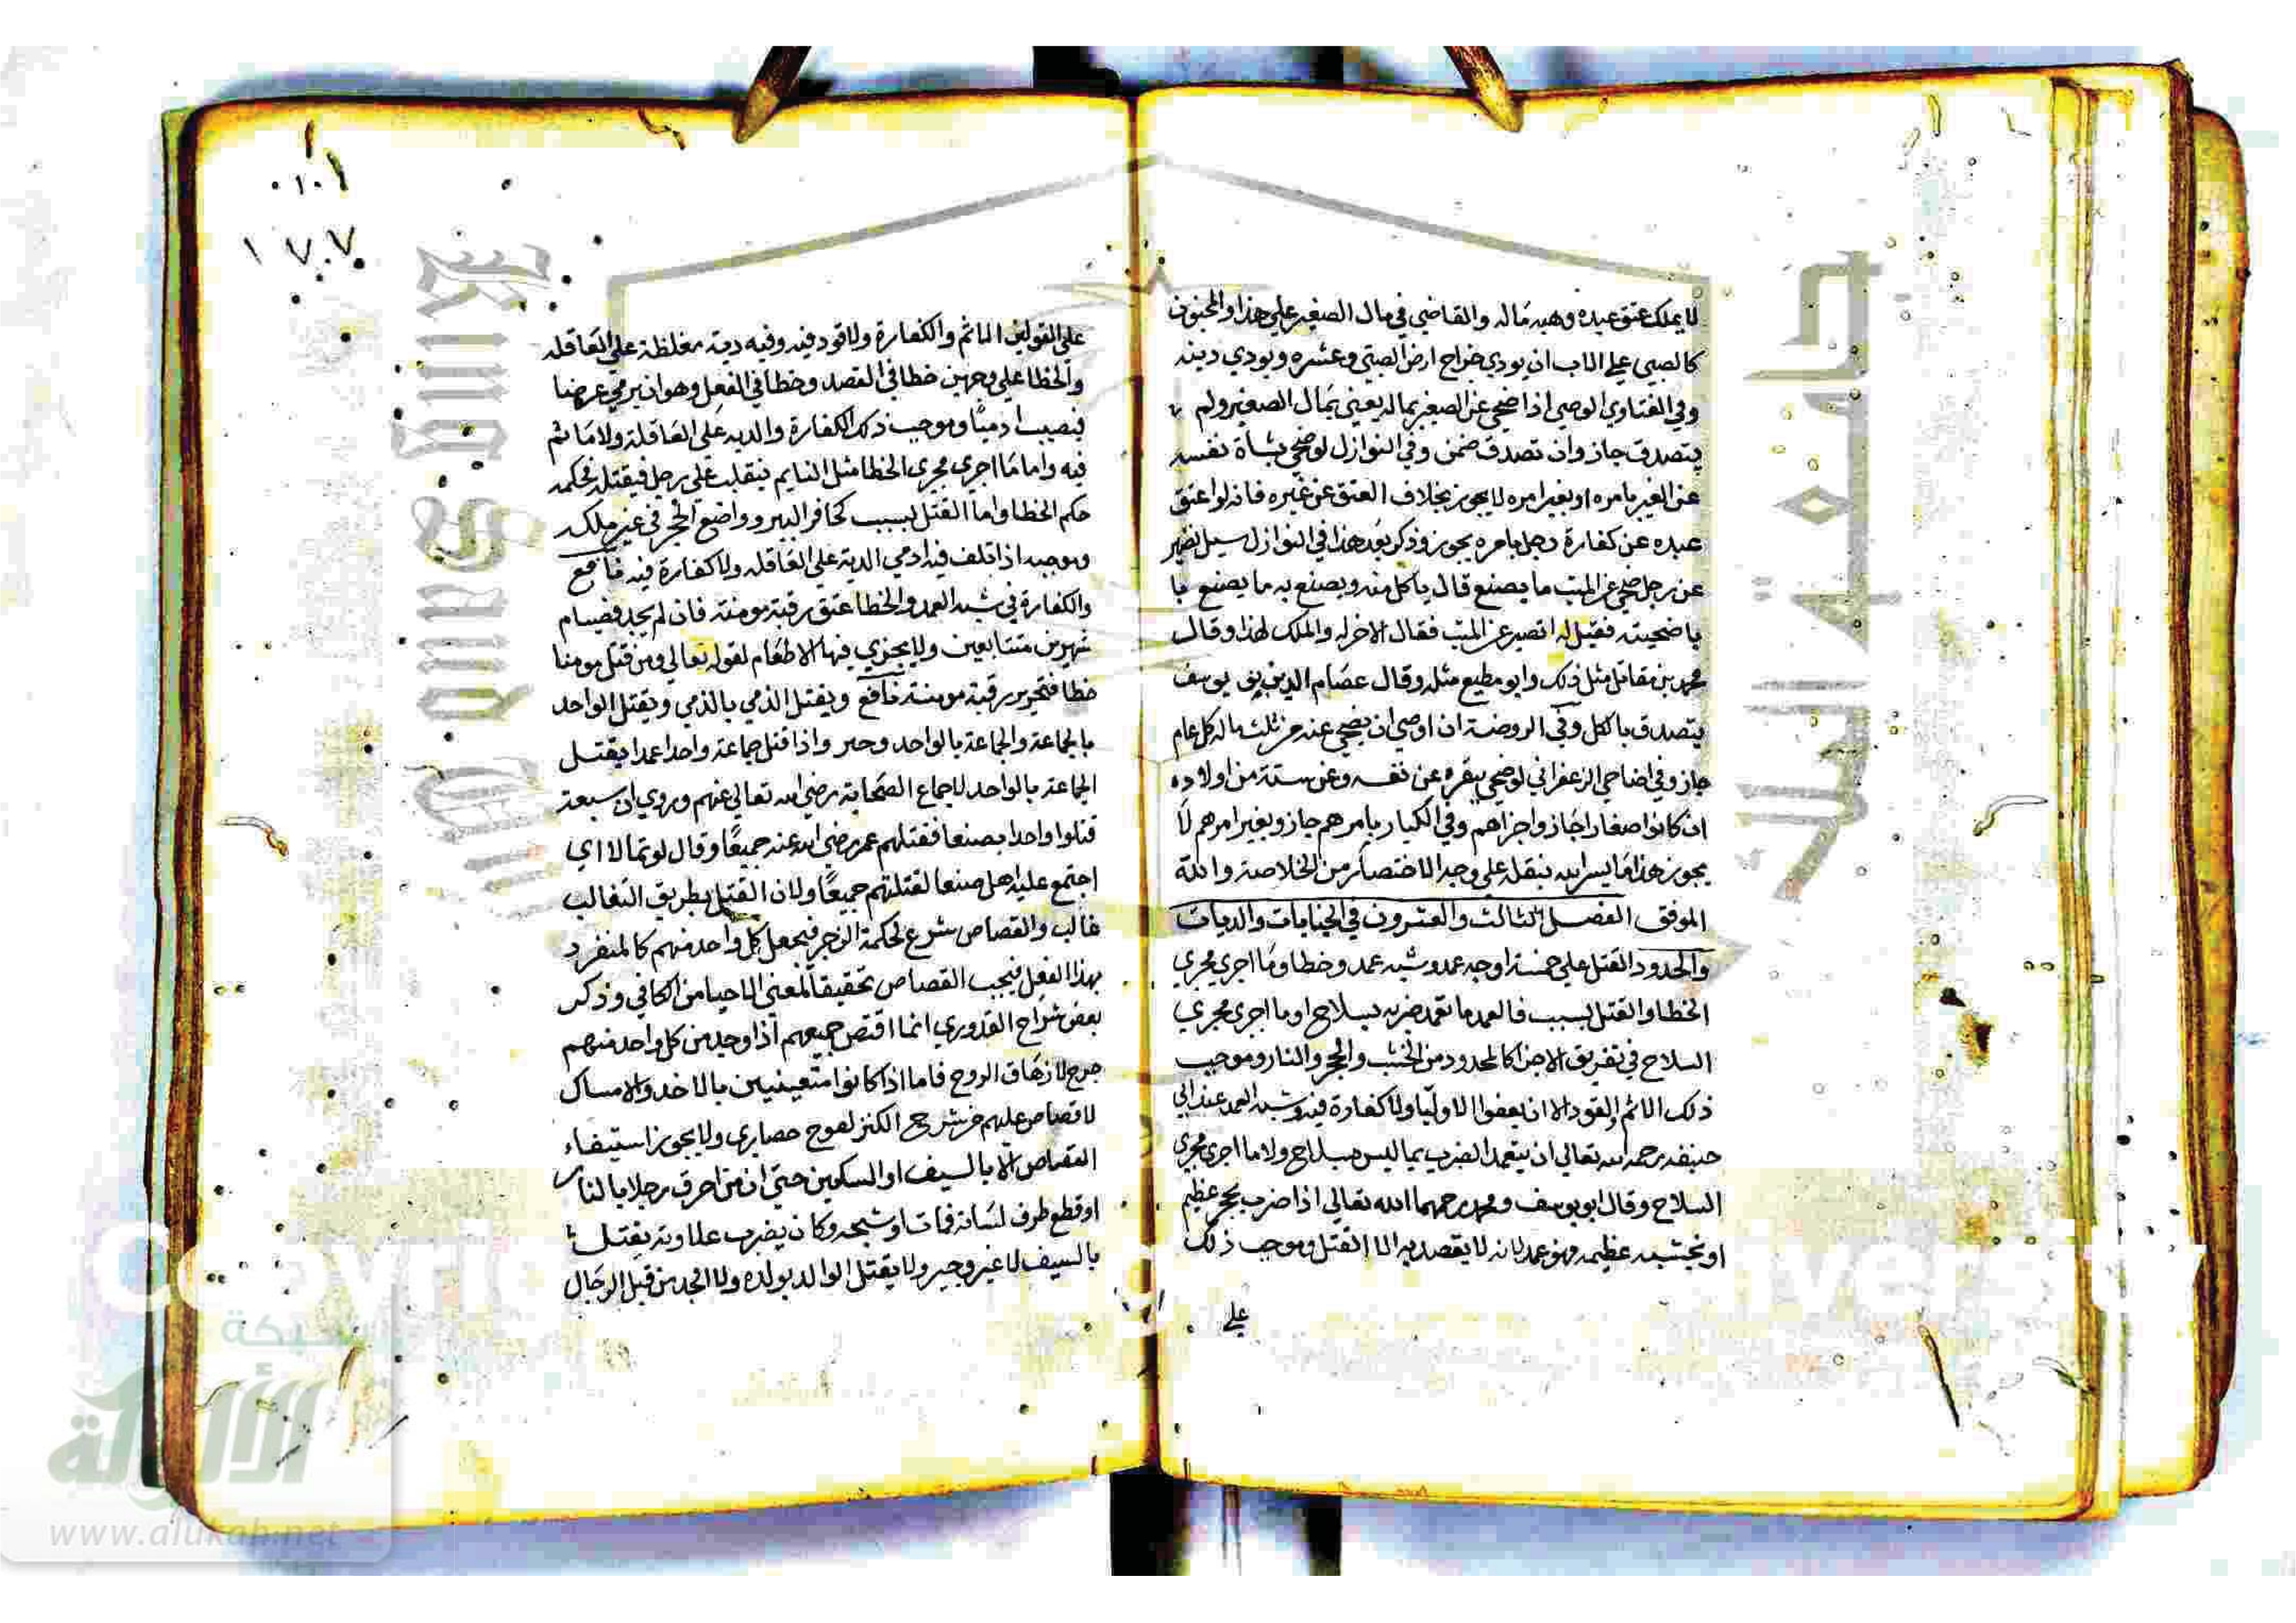 لا يملك عتق عبده وهبة ماله والقاضي في مال الصغير علي هذا والمجنون
كالصبي علي الاب ان يودي خراج ارض الصبي وعشره ويودي دينه
وفي الفتاوي الوصي اذا ضحي عن الصغير بماله يعني بمال الصغير ولم
يتصدق جاز وان تصدق ضمن وفي النوازل لو ضحي بشاة نفسه
عن الغير بامره او بغير امره لا يجوز بخلاف العتق عن غيره فانه لو اعتق
عبده عن كفارة رجل بامره يجوز وذكر بعد هذا في النوازل سيل نصير
عن رجل ضحي عن الميت ما يصنع قال ياكل منه ويصنع به ما يصنع با
باضحيته فقيل له اتصير عن الميت فقال الاجر له والملك لهذا وقال
محمد بن مقاتل مثل ذلك وابو مطيع مثله وقال عصام الدين بن يوسف
يتصدق بالكل وفي الروضة ان اوصي ان يضحي عنه من ثلث ماله كل عام
جاز وفي اضاحي الزعفراني لو ضحي ببقرة عن نفسه وعن ستة من اولاده
ان كانوا صغارا جاز واجزاهم وفي الكبار بامرهم جاز وبغير امرهم لا
يجوز هذا ما يسر الله بنقله علي وجه الاختصار من الخلاصة والله
الموفق الفصل الثالث والعشرون في الجنايات والديات
والحدود القتل علي خمسة اوجه عمد وشبه عمد وخطا وما اجري مجري
الخطا والقتل بسبب فالعمد ما تعمد ضربه بسلاح او ما اجري مجري
السلاح في تفريق الاجزا كالمحدود من الخشب والحجر والنار وموجب
ذلك الاثم والقود الا ان يعفوا الاوليا ولا كفارة فيه وشبه العمد عند ابي
حنيفة رحمه الله تعالي ان يتعمد الضرب بما ليس بسلاح ولا ما اجري مجري
السلاح وقال ابو يوسف ومحمد رحمهما الله تعالي اذا ضرب بحجر عظيم
او بخشبه عظيمه فهو عمد لانه لا يقصد به الا القتل وموجب ذلك
علي
١٠١
١٧٠٧
علي القولين الماثم والكفارة ولا قود فيه وفيه دية مغلظة علي العاقله
والخطا علي وجهين خطا في القصد وخطا في الفعل وهو ان يرمي عرضا
فيصيب ادميا وموجب ذلك الكفارة والديه علي العاقلة ولا ماثم
فيه واما ما اجري مجري الخطا مثل النايم ينقلب علي رجل فيقتله فحكمه
حكم الخطا واما القتل بسبب كحافر البير وواضع الحجر في غير ملكه
وموجبه اذا تلف فيه ادمي الدية علي العاقله ولا كفارة فيه نافع
والكفارة في شبه العمد والخطا عتق رقبة مومنة فان لم يجد فصيام
شهرين متتابعين ولا يجزي فيها الاطعام لقوله تعالي ومن قتل مومنا
خطا فتحرير رقبة مومنة نافع ويقتل الذمي بالذمي ويقتل الواحد
بالجماعة والجماعة بالواحد وحر واذا قتل جماعة واحدا عمدا يقتل
الجماعة بالواحد لاجماع الصحابة رضي الله تعالي عنهم وروي ان سبعة
قتلوا واحدا بصنعا فقتلهم عمر رضي الله عنه جميعا وقال لو تمالا اي
اجتمع عليه اهل صنعا لقتلتهم جميعا ولان القتل بطريق التغالب
غالب والقصاص شرع لحكمة الزجر فيجعل كل واحد منهم كالمنفرد
بهذا الفعل فيجب القصاص تحقيقا لمعني الاحيا من الكافي وذكر
بعض شراح القدوري انما اقتص جميعهم اذا وجد من كل واحد منهم
جرح لازهاق الروح فاما اذا كانوا متعينين بالاخد والامساك
لا قصاص عليهم من شرح الكنز لفوج حصاري ولا يجوز استيفاء
القصاص الا بالسيف او السكين حتي ان من احرق رجلا بالنار
او قطع طرف لسانه فمات او شجه وكان يضرب علاوته يقتل
بالسيف لا غير وجير ولا يقتل الوالد بولده ولا الجد من قبل الرجال
شبكة
الألوكة
www.alukah.net